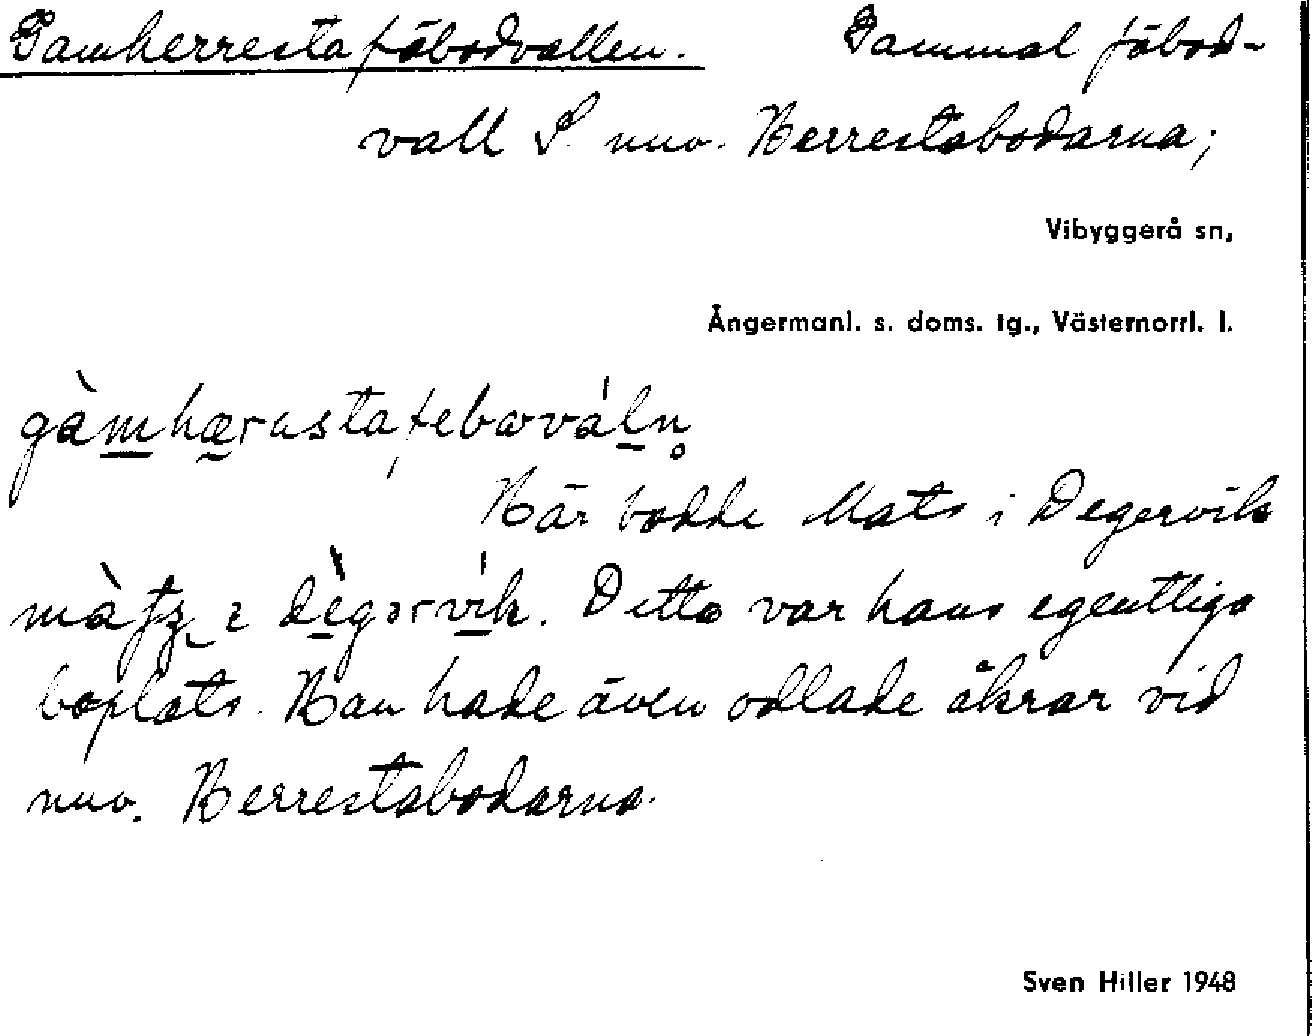 Gamherresta fäbodvallen. Gammal fäbod-
vall S. nuv. Herrestabodarna;
Vibyggerå sn,
Ångermanl. s. doms. tg., Västernorrl. l.
Här bodde Mats i Degervik
Detta var hans egentliga
boplats. Han hade även odlade åkrar vid
nuv. Herrestabodarna.
Sven Hiller 1948